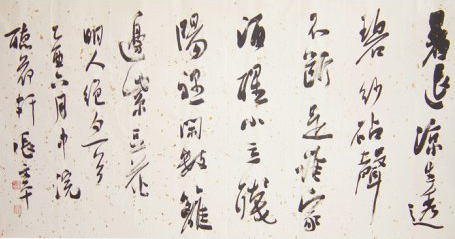 暑退涼生透
碧紗砧聲
不斷是誰家
酒醒小立殘
陽裡閑數籬
邊紫豆花
明人絕句一首
乙酉六月中浣
軒